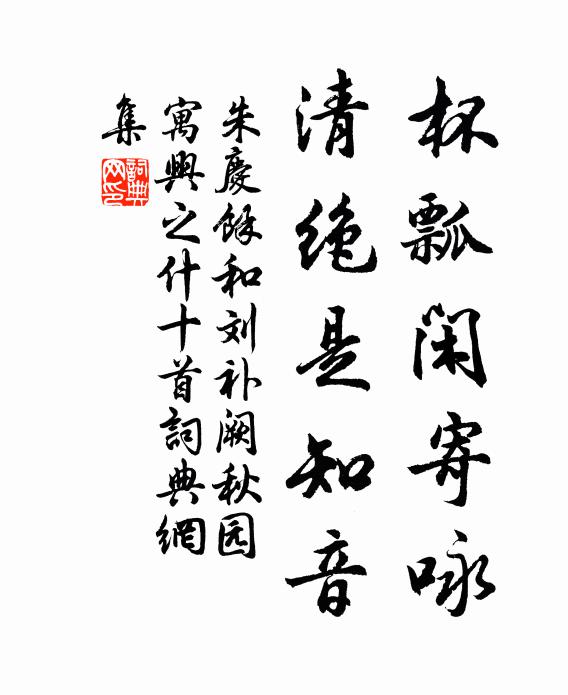 杯瓢闲寄咏
清绝是知音
朱慶餘和刘补阙秋园
寓興之什十首詞典網
集
詞典網印